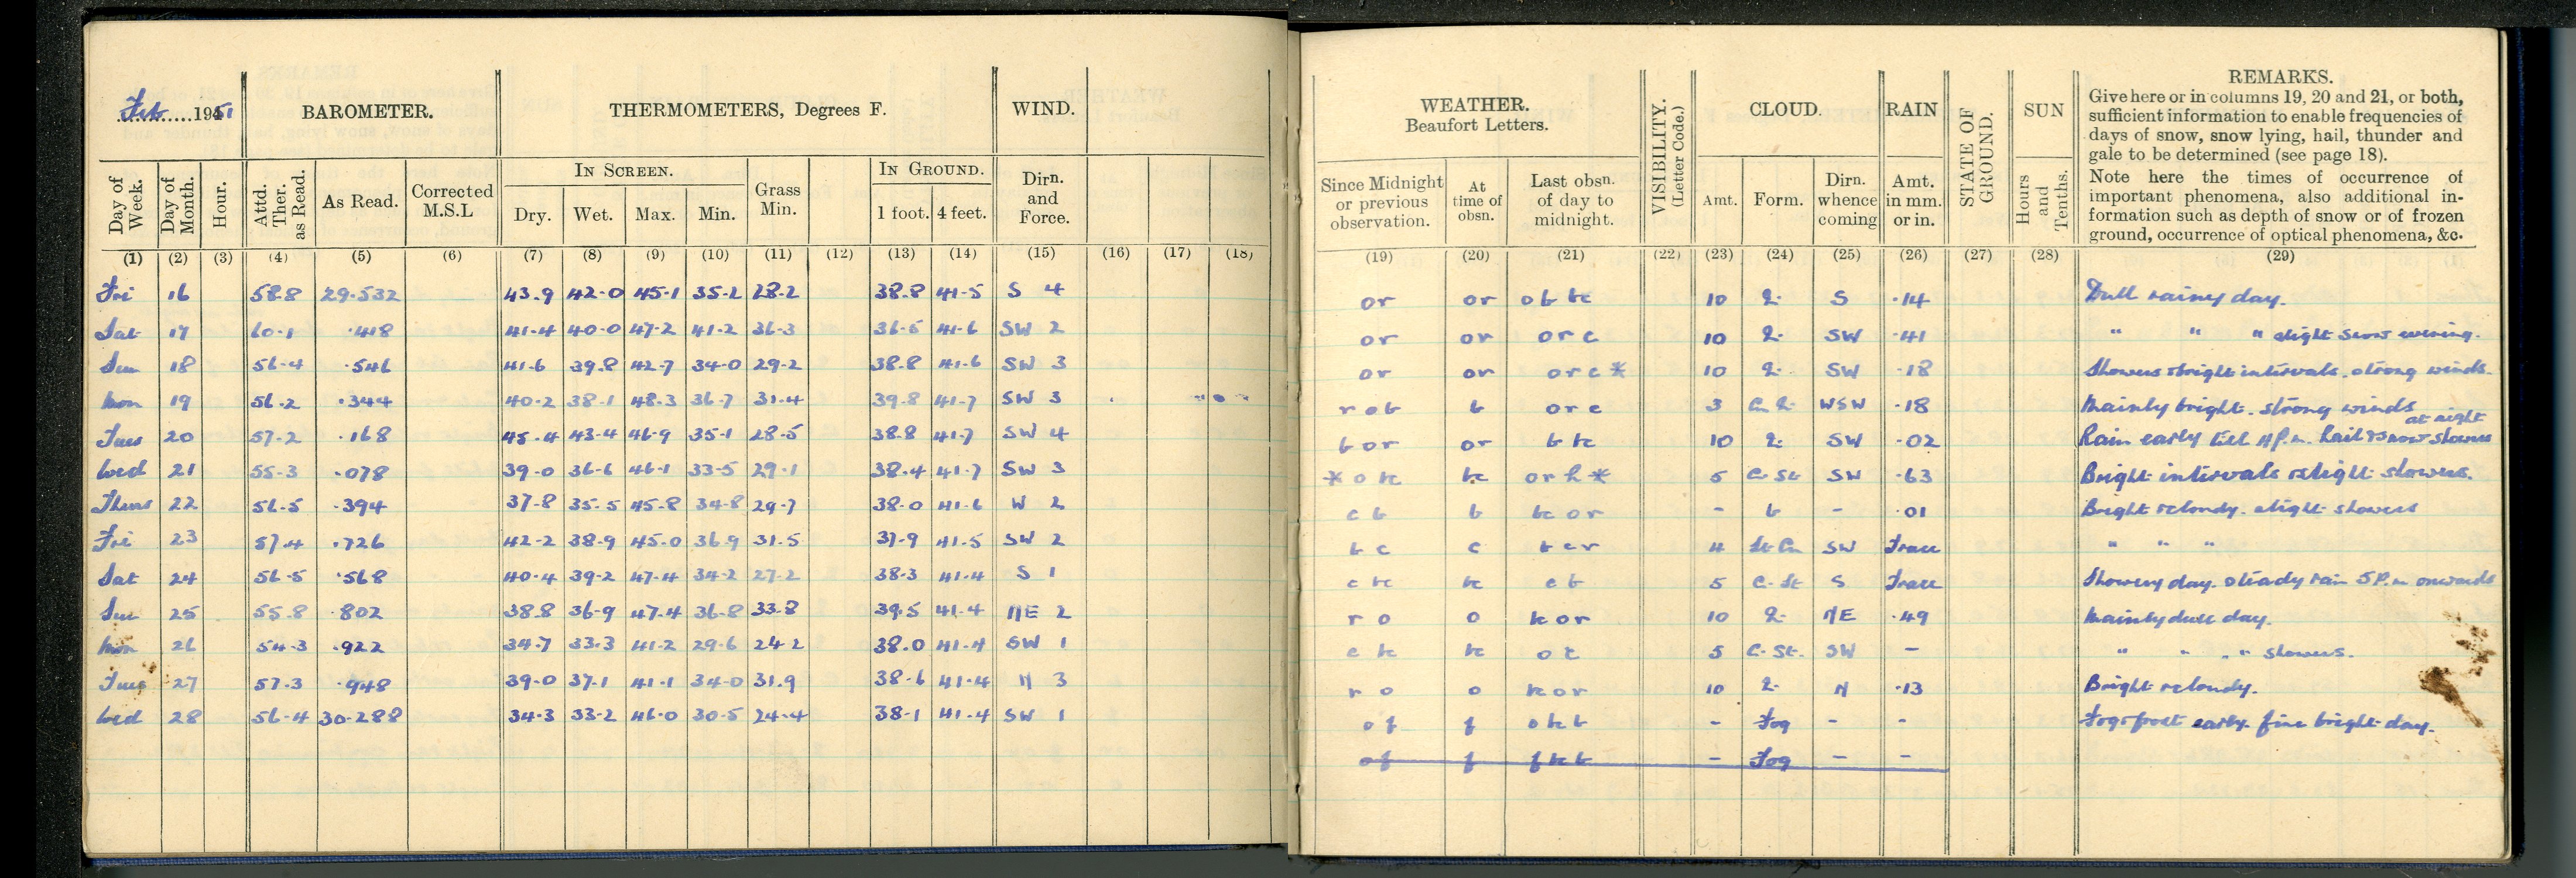 Feb 1951
BAROMETER.
THERMOMETERS, Degrees F.
WIND.
Day of Week.
Day of Month.
Hour.
Attd. Ther. as Read.
As Read.
Corrected M.S.L
IN SCREEN.
Dry. Wet. Max. Min.
Grass Min.
IN GROUND.
1 foot. 4 feet.
Dirn. and Force.
(1) (2) (3) (4) (5) (6) (7) (8) (9) (10) (11) (12) (13) (14) (15) (16) (17) (18)
Fri 16 58.8 29.532 43.9 42.0 45.1 35.2 28.2 38.8 41.5 S 4
Sat 17 60.1 .418 41.4 40.0 47.2 41.2 36.3 36.5 41.6 SW 2
Sun 18 56.4 .546 41.6 39.8 42.7 34.0 29.2 38.8 41.6 SW 3
Mon 19 56.2 .344 40.2 38.1 48.3 36.7 31.4 39.8 41.7 SW 3
Tues 20 57.2 .168 45.4 43.4 46.9 35.1 28.5 38.8 41.7 SW 4
Wed 21 55.3 .078 39.0 36.6 46.1 33.5 29.1 38.4 41.7 SW 3
Thurs 22 56.5 .394 37.8 35.5 45.8 34.8 29.7 38.0 41.6 W 2
Fri 23 57.4 .726 42.2 38.9 45.0 36.9 31.5 37.9 41.5 SW 2
Sat 24 56.5 .568 40.4 39.2 47.4 34.2 27.2 38.3 41.4 S 1
Sun 25 55.8 .802 38.8 36.9 47.4 36.8 33.8 39.5 41.4 NE 2
Mon 26 54.3 .922 34.7 33.3 41.2 29.6 24.2 38.0 41.4 SW 1
Tues 27 57.3 .948 39.0 37.1 41.1 34.0 31.9 38.6 41.4 N 3
Wed 28 56.4 30.288 34.3 33.2 46.0 30.5 24.4 38.1 41.4 SW 1
WEATHER.
Beaufort Letters.
VISIBILITY. (Letter Code.)
CLOUD.
RAIN
STATE OF GROUND.
SUN
REMARKS.
Give here or in columns 19, 20 and 21, or both,
sufficient information to enable frequencies of
days of snow, snow lying, hail, thunder and
gale to be determined (see page 18).
Note here the times of occurrence of
important phenomena, also additional in-
formation such as depth of snow or of frozen
ground, occurrence of optical phenomena, &c.
Since Midnight or previous observation.
At time of obsn.
Last obsn. of day to midnight.
Amt. Form. Dirn. whence coming
Amt. in mm. or in.
Hours and Tenths.
(19) (20) (21) (22) (23) (24) (25) (26) (27) (28) (29)
or or 10 S .14 Dull rainy day.
or or orc 10 SW .41 " " " slight snow evening.
or or orc* 10 SW .18 Showers & bright intervals. strong winds.
rob b orc 3 WSW .18 Mainly bright. strong winds
at night
bor or 10 SW .02 Rain early till 4 P.m. hail & snow showers
5 SW .63 Bright intervals & slight showers.
cb b - b - .01 Bright & cloudy. slight showers
c 4 St Cu SW Trace " " "
5 C. St S Trace Showery day. steady rain 5 P.m onwards
ro o 10 NE .49 Mainly dull day.
5 C. St. SW - " " " showers.
ro o 10 N .13 Bright & cloudy.
of f - Fog - - Fog & frost early. fine bright day.
of f - Fog - -